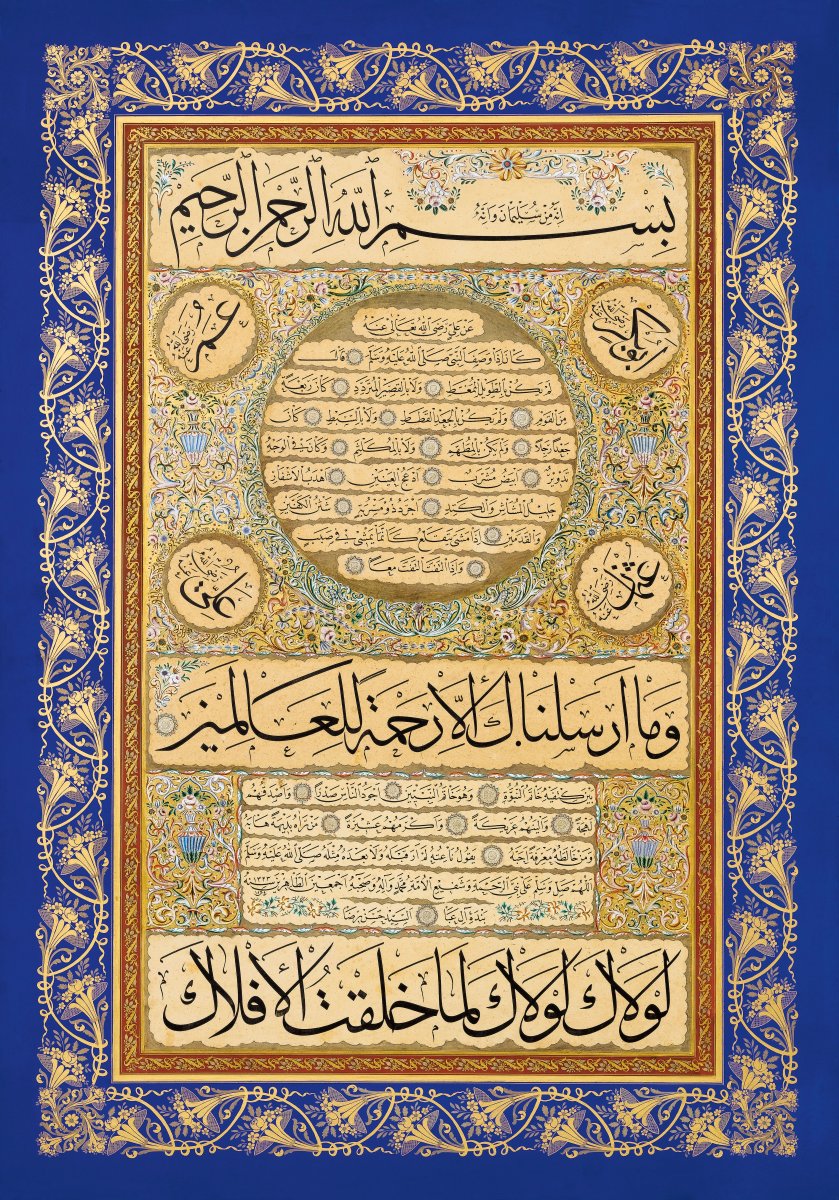 إنه من سليمان وإنه
بسم الله الرحمن الرحيم
ابو بكر رضي الله عنه
عمر رضي الله عنه
عن علي رضي الله تعالى عنه
كان إذا وصف النبي صلى الله عليه وسلم قال
لم يكن بالطويل الممغط ولا بالقصير المتردد وكان ربعة
من القوم ولم يكن بالجعد القطط ولا بالسبط كان
جعدا رجلا ولم يكن بالمطهم ولا بالمكلثم وكان في الوجه
تدوير أبيض مشرب أدعج العينين أهدب الأشفار
جليل المشاش والكتد أجرد ذو مسربة شثن الكفين
والقدمين إذا مشى يتقلع كأنما يمشي في صبب
وإذا التفت التفت معا
عثمان رضي الله عنه
علي رضي الله عنه
وما أرسلناك إلا رحمة للعالمين
بين كتفيه خاتم النبوة وهو خاتم النبيين أجود الناس صدرا وأصدقهم
لهجة وألينهم عريكة وأكرمهم عشيرة من رآه بديهة هابه
ومن خالطه معرفة أحبه يقول ناعته لم أر قبله ولا بعده مثله صلى الله عليه وسلم
اللهم صل وسلم على نبي الرحمة وشفيع الأمة محمد وآله وصحبه أجمعين الطاهرين
لولاك لولاك لما خلقت الأفلاك